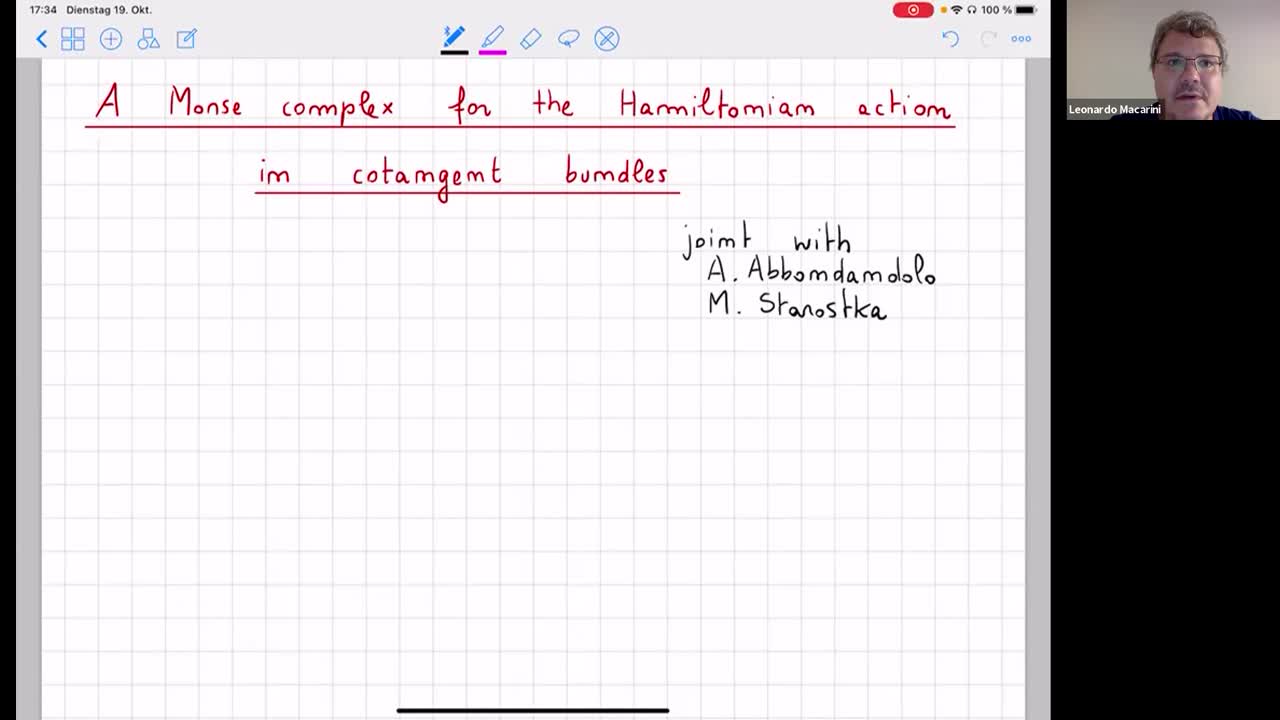 17:34 Dienstag 19. Okt.
100 %
A Morse complex for the Hamiltonian action
in cotangent bundles
joint with
A. Abbondandolo
M. Starostka
Leonardo Macarini